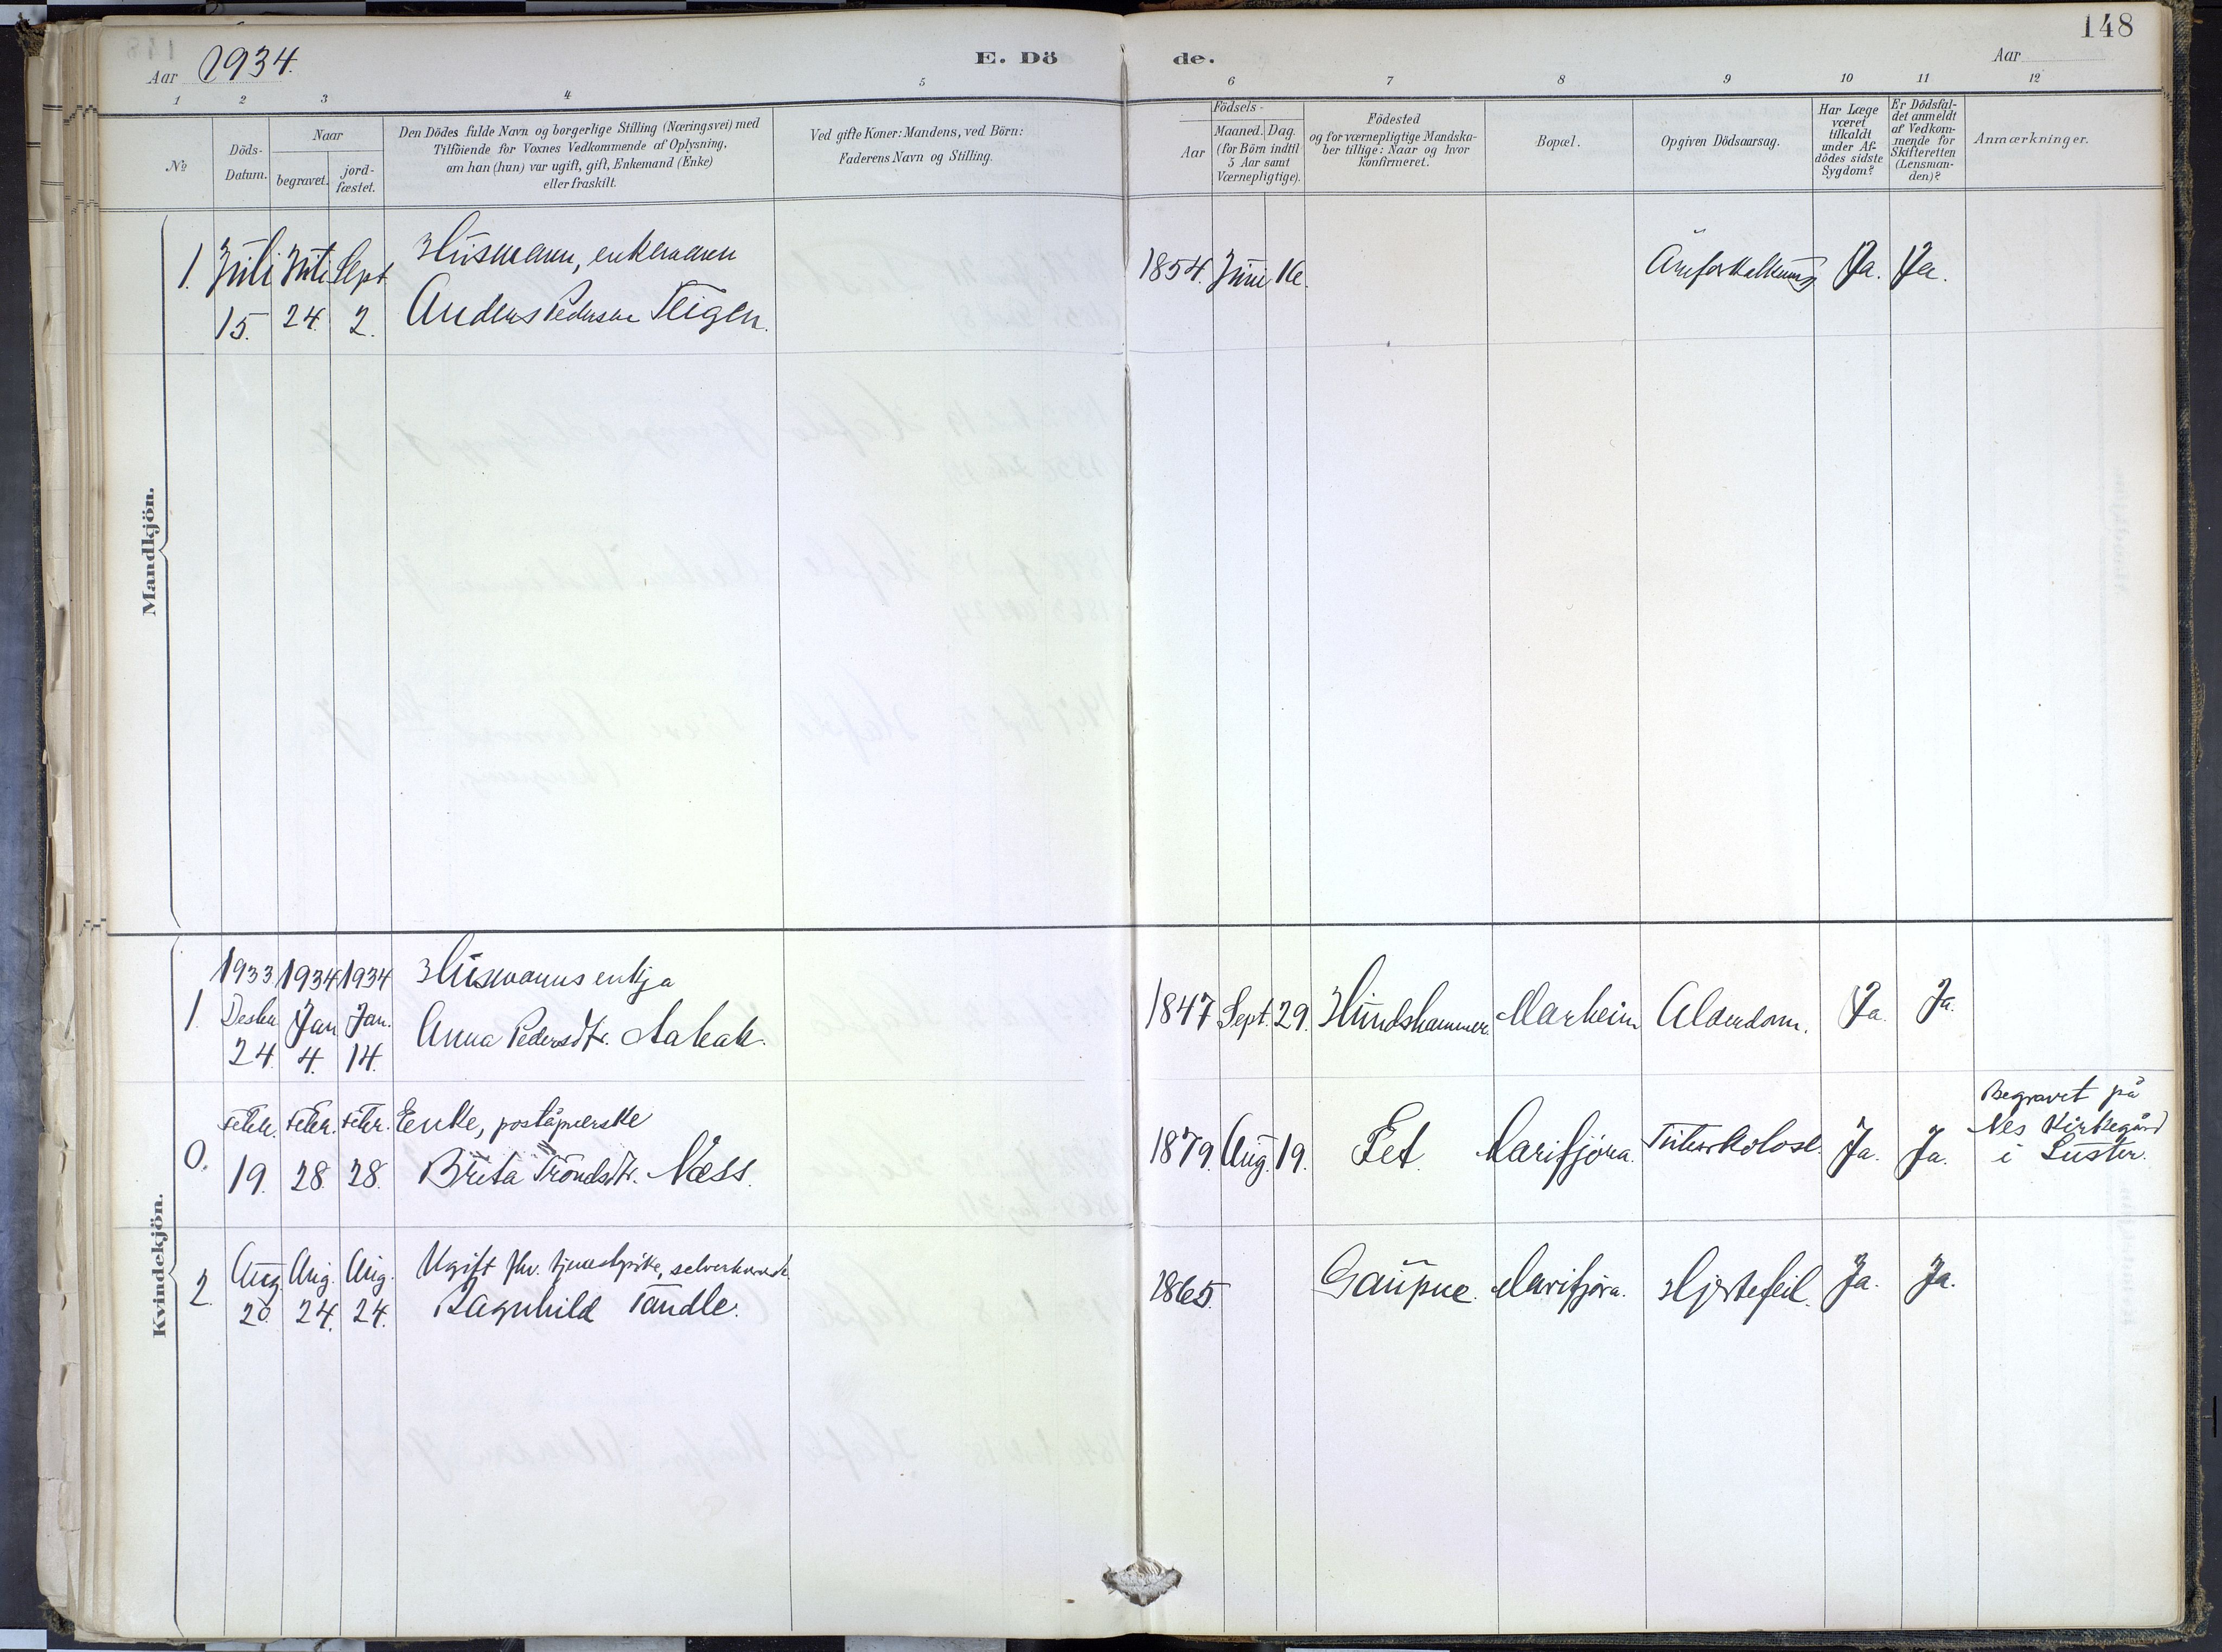 148
Aar 1934.
E. Dö de.
Aar
1 2 3 4 5 6 7 8 9 10 11 12
No
Döds-Datum.
Naar
begravet.
jord-fæstet.
Den Dödes fulde Navn og borgerlige Stilling (Næringsvei) med
Tilföiende for Voxnes Vedkommende af Oplysning,
om han (hun) var ugift, gift, Enkemand (Enke)
eller fraskilt.
Ved gifte Koner: Mandens, ved Börn:
Faderens Navn og Stilling.
Födsels-
Aar
Maaned. Dag.
(for Börn indtil
5 Aar samt
Værnepligtige).
Födested
og for værnepligtige Mandska-
ber tillige: Naar og hvor
konfirmeret.
Bopæl.
Opgiven Dödsaarsag.
Har Læge
været
tilkaldt
under Af-
dödes sidste
Sygdom?
Er Dödsfal-
det anmeldt
af Vedkom-
mende for
Skifteretten
(Lensman-
den)?
Anmærkninger.
Mandkjön.
1. Juli Juli Sept. Husmann, enkemann 1854. Juni 16. Åreforkalkning Ja. Ja.
15. 24. 2. Anders Pedersen Teigen.
Kvindekjön.
1933 1934 1934 Husmanns enkja
1. Desbr. Jan. Jan. Anna Pedersdtr. 1847 Sept. 29. Hundshammer. Marheim Alderdom. Ja. Ja.
24. 4. 14.
Febr. Febr. Febr. Enke, poståpnerske Begravet på
0. 1879. Aug. 19. Fet. Marifjøra. Tuberkolose. Ja. Ja. Nes Kirkegård
19. 28. 28. Brita Tröndsdtr. Næss. i Luster.
Aug. Aug. Aug. Ugift fhv. tjenestpike,
2. 20. 24. 24. Ragnhild Tandle. 1865. Gaupne. Marifjøra. Hjertefeil. Ja. Ja.